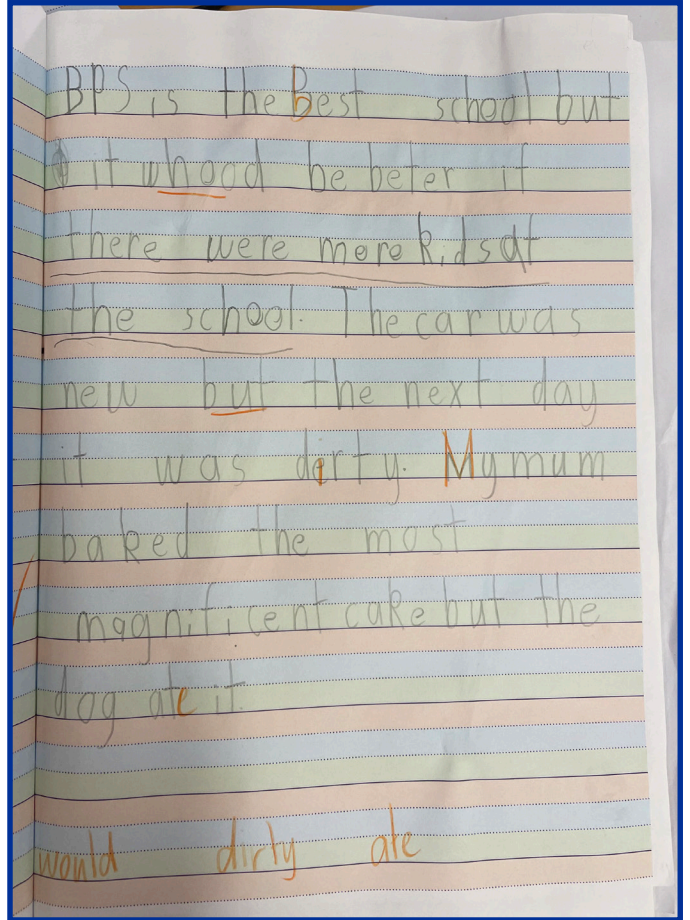 BPS is the Best school but
it whood be beter if
there were more kids at
the school. The car was
new but the next day
it was dirty. My mum
baked the most
magnificent cake but the
dog ate it.
would dirty ate